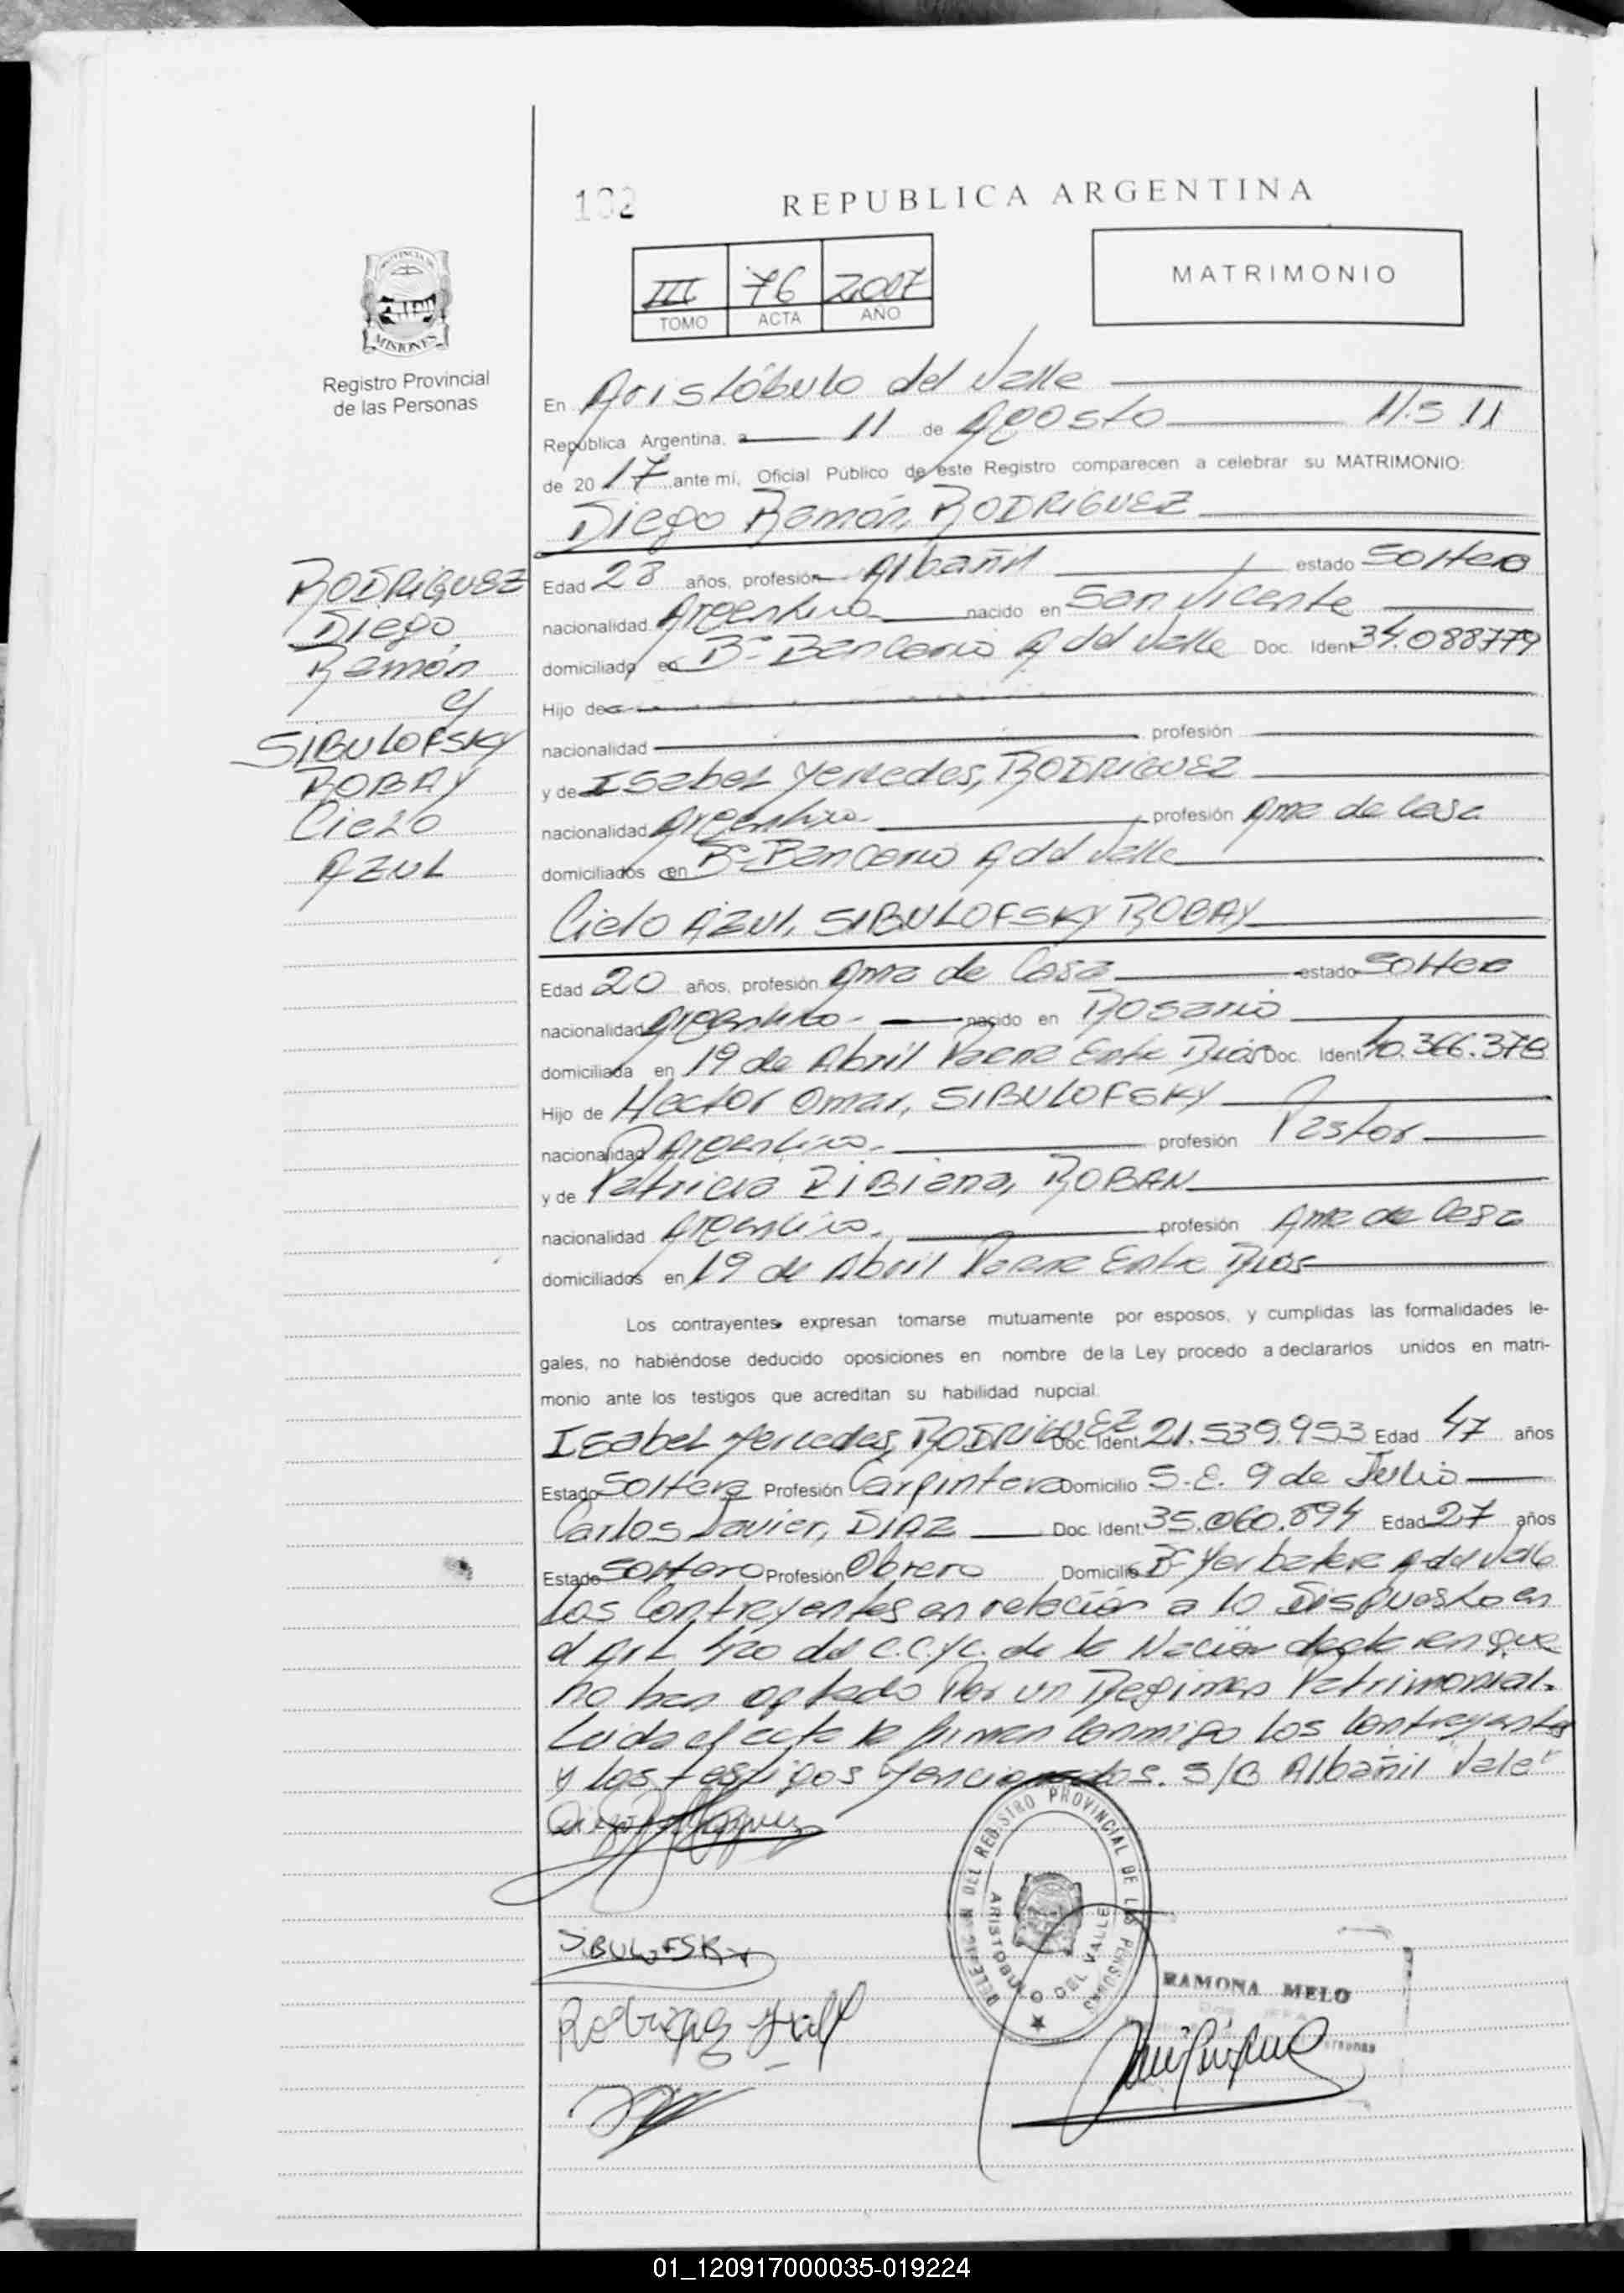 132
REPUBLICA ARGENTINA
III 76 2007
TOMO ACTA AÑO
MATRIMONIO
PROVINCIA DE
MISIONES
Registro Provincial
de las Personas
En Aristóbulo del Valle
República Argentina, a 11 de Agosto H.S 11
de 20 17 ante mí, Oficial Público de este Registro comparecen a celebrar su MATRIMONIO:
Diego Ramón, RODRIGUEZ
RODRIGUEZ
Diego
Ramón
y
SIBULOFSKY
ROBAY
Cielo
AZUL
Edad 28 años, profesión Albañil estado Soltero
nacionalidad Argentino nacido en San Vicente
domiciliado en Bº Bancario A del Valle Doc. Ident 34.088779
Hijo de
nacionalidad profesión
y de Isabel Mercedes, RODRIGUEZ
nacionalidad Argentina profesión Ama de Casa
domiciliados en Bº Bancario A del Valle
Cielo AZUL, SIBULOFSKY ROBAY
Edad 20 años, profesión Ama de Casa estado Soltera
nacionalidad Argentina nacido en Rosario
domiciliada en 19 de Abril Entre Rios Doc. Ident 40.366.378
Hijo de Hector Omar, SIBULOFSKY
nacionalidad Argentino profesión Pastor
y de Patricia BiBiana, ROBAN
nacionalidad Argentina profesión Ama de Casa
domiciliados en 19 de Abril Entre Rios
Los contrayentes expresan tomarse mutuamente por esposos, y cumplidas las formalidades le-
gales, no habiéndose deducido oposiciones en nombre de la Ley procedo a declararlos unidos en matri-
monio ante los testigos que acreditan su habilidad nupcial.
Isabel Mercedes, RODRIGUEZ Doc. Ident 21.539.953 Edad 47 años
Estado Soltera Profesión Carpintera Domicilio S.E. 9 de Julio
Carlos Javier, DIAZ Doc. Ident 35.060.894 Edad 27 años
Estado Soltero Profesión Obrero Domicilio Bº Yerbatera A del Valle
Los Contrayentes en relación a lo Dispuesto en
el Art 420 del C.C.y C. de la Nación declaren que
no han optado Por un Regimen Patrimonial.
Leida el acta la firman Conmigo los Contrayentes
y los testigos Mencionados. S/B Albañil Vale
SIBULOFSKY
DELEGACION DEL REGISTRO PROVINCIAL DE LAS PERSONAS
ARISTOBULO DEL VALLE
RAMONA MELO
01_120917000035-019224